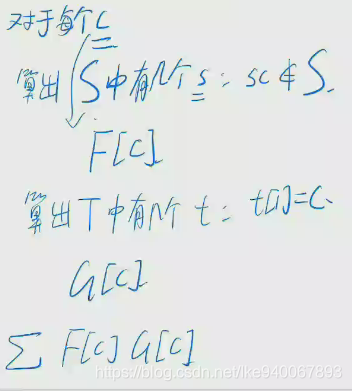 对于每个c
算出S中有几个s: sc∉S.
F[c]
算出T中有几个t: t[1]=c.
G[c]
∑ F[c] G[c]
https://blog.csdn.net/lke940067893